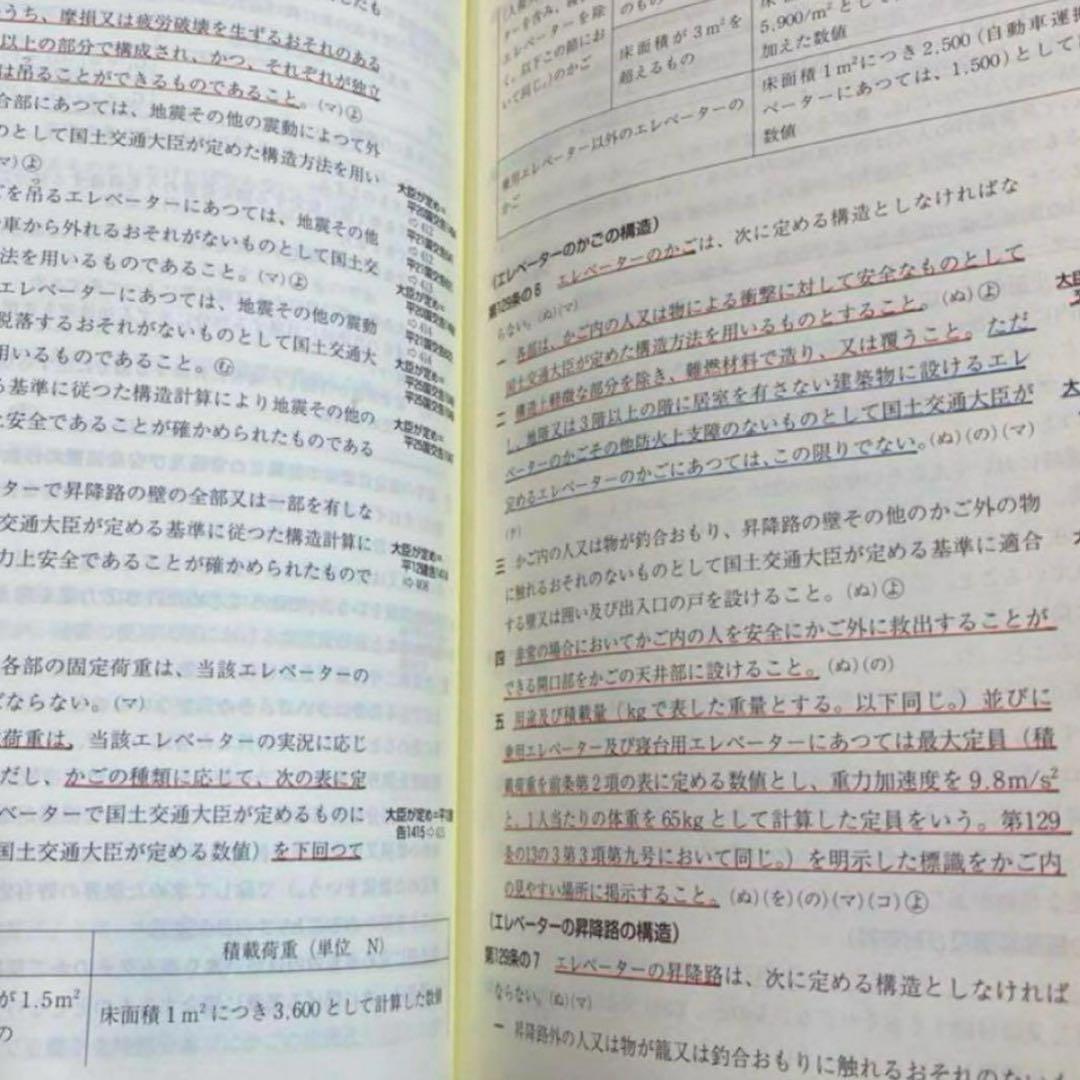 うち、摩損又は疲労破壊を生ずるおそれのある
以上の部分で構成され、かつ、それぞれが独立
は吊ることができるものであること。(マ)㋵
合部にあつては、地震その他の震動によつて外
のとして国土交通大臣が定めた構造方法を用い
マ)㋵
どを吊るエレベーターにあつては、地震その他
車から外れるおそれがないものとして国土交
法を用いるものであること。(マ)㋵
エレベーターにあつては、地震その他の震動
脱落するおそれがないものとして国土交通大
用いるものであること。
る基準に従つた構造計算により地震その他の
上安全であることが確かめられたものである
ターで昇降路の壁の全部又は一部を有しな
交通大臣が定める基準に従つた構造計算に
力上安全であることが確かめられたもので
各部の固定荷重は、当該エレベーターの
ばならない。(マ)
荷重は、当該エレベーターの実況に応じ
だし、かごの種類に応じて、次の表に定
ベーターで国土交通大臣が定めるものに
国土交通大臣が定める数値)を下回つて
積載荷重(単位 N)
が1.5m²
の
床面積1m²につき3,600として計算した数値
大臣が定め=
大臣が定め=
大臣が定め=
大臣が定め=
大臣が定め=
大臣が定め=平
告1415
エレベーターを除
く。以下この節にお
いて同じ。)のかご
床面積が3m²を
超えるもの
5,900/m²として
加えた数値
乗用エレベーター以外のエレベーターの
かご
床面積1m²につき2,500(自動車運搬
ベーターにあつては、1,500)として
数値
(エレベーターのかごの構造)
第129条の6 エレベーターのかごは、次に定める構造としなければな
らない。(ぬ)(マ)
一 各部は、かご内の人又は物による衝撃に対して安全なものとして
国土交通大臣が定めた構造方法を用いるものとすること。(ぬ)㋵
二 構造上軽微な部分を除き、難燃材料で造り、又は覆うこと。ただ
し、地階又は3階以上の階に居室を有さない建築物に設けるエレ
ベーターのかごその他防火上支障のないものとして国土交通大臣が
定めるエレベーターのかごにあつては、この限りでない。(ぬ)(の)(マ)
三 かご内の人又は物が釣合おもり、昇降路の壁その他のかご外の物
に触れるおそれのないものとして国土交通大臣が定める基準に適合
する壁又は囲い及び出入口の戸を設けること。(ぬ)㋵
四 非常の場合においてかご内の人を安全にかご外に救出することが
できる開口部をかごの天井部に設けること。(ぬ)(の)
五 用途及び積載量(kgで表した重量とする。以下同じ。)並びに
乗用エレベーター及び寝台用エレベーターにあつては最大定員(積
載荷重を前条第2項の表に定める数値とし、重力加速度を9.8m/s²
と、1人当たりの体重を65kgとして計算した定員をいう。第129
条の13の3第3項第九号において同じ。)を明示した標識をかご内
の見やすい場所に掲示すること。(ぬ)(を)(の)(マ)(コ)㋵
(エレベーターの昇降路の構造)
第129条の7 エレベーターの昇降路は、次に定める構造としなければ
ならない。(ぬ)(マ)
一 昇降路外の人又は物が籠又は釣合おもりに触れるおそれのない